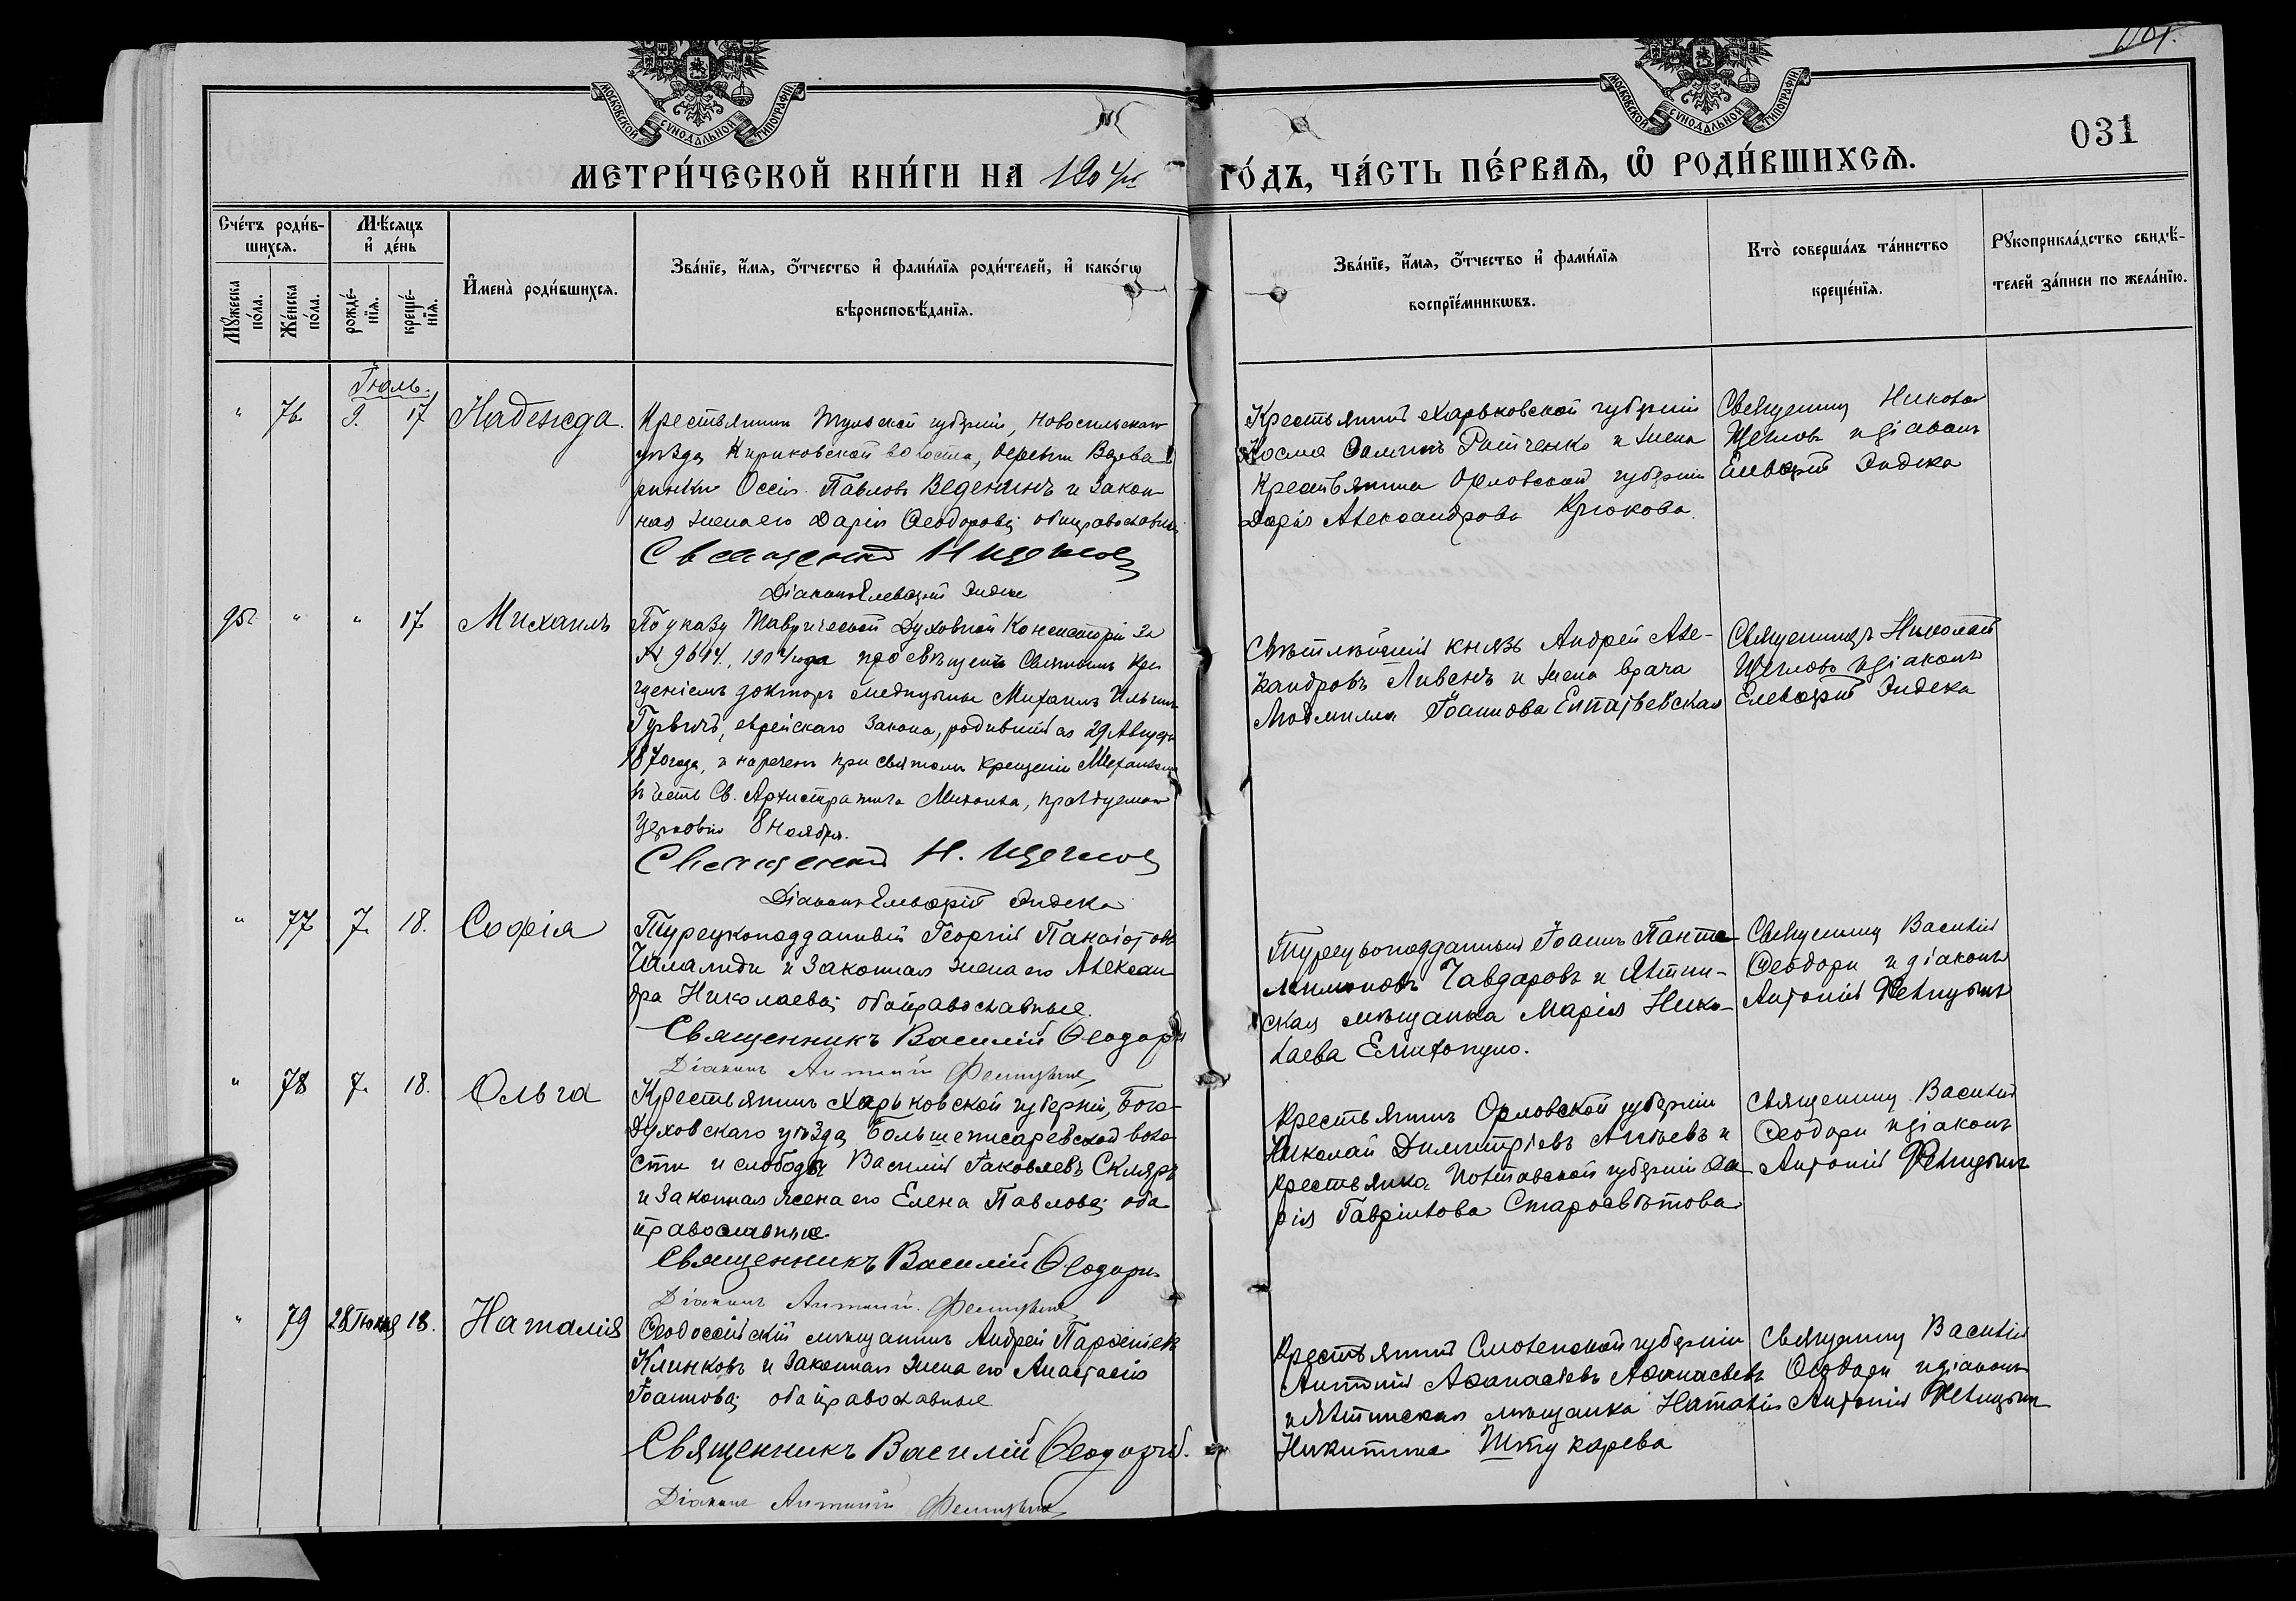 МОСКОВСКОЙ СѴНОДАЛЬНОЙ ТИПОГРАФІИ
МОСКОВСКОЙ СѴНОДАЛЬНОЙ ТИПОГРАФІИ
031
МЕТРИ́ЧЕСКОЙ КНИ́ГИ НА 1904
ГО́ДЪ, ЧА́СТЬ ПЕ́РВАѦ, Ѡ РОДИ́ВШИХСѦ.
Сче́тъ роди́в-
шихсѧ.
Мꙋ́жеска по́ла.
Же́нска по́ла.
Мѣ́сяцъ
и҆ де́нь
рожде́-
нїѧ.
креще́-
нїѧ.
И҆мена̀ роди́вшихсѧ.
Зва́нїе, и҆́мѧ, ѻ҆́тчество и҆ фами́лїѧ роди́телей, и҆ како́гѡ
вѣроисповѣ́данїѧ.
Зва́нїе, и҆́мѧ, ѻ҆́тчество и҆ фами́лїѧ
воспрїе́мникѡвъ.
Кто̀ соверша́лъ та́инство
креще́нїѧ.
Рꙋкоприкла́дство свидѣ́-
телей за́писи по жела́нїю.
Іюль.
" 76 9. 17 Надежда.
Крестьянинъ Тульской губерніи, Новосильскаго
уѣзда, Кириковской волости, деревни
Павловъ Веденинъ и закон-
ная жена его Дарія Ѳеодорова; оба православные
Священникъ Н Щегловъ
Діаконъ Елевѳерій Эндека
Крестьянинъ Харьковской губерніи
Косма и жена
крестьянина Орловской губерніи
Дарія Александрова Крюкова.
Священникъ Николай
Щегловъ и діаконъ
Елевѳерій Эндека
95 " " 17 Михаилъ
По указу Таврической Духовной Консисторіи за
№ 9694, 1904 года просвѣщенъ Святымъ Кре-
щеніемъ докторъ медицины Михаилъ Ильинъ
Гурвичъ, еврейскаго закона, родившійся 29 Августа
1870 года, и нареченъ при святомъ крещеніи Михаиломъ
въ честь Св. Архистратига Михаила, празднуемаго
Церковію 8 Ноября.
Священникъ Н. Щегловъ
Діаконъ Елевѳерій Эндека
Свѣтлѣйшій князь Андрей Але-
ксандровъ Ливенъ и жена врача
Людмила Іоаннова Елпатьевская
Священникъ Николай
Щегловъ и діаконъ
Елевѳерій Эндека
" 77 7. 18. Софія
Турецкоподданный Георгій Панаіотовъ
Шаламиди и законная жена его Алексан-
дра Николаева; оба православные.
Священникъ Василій Ѳеодори
Діаконъ Антоній
Турецкоподданный Іоаннъ Панте-
лимоновъ Чавдаровъ и Ялтин-
ская мѣщанка Марія Нико-
лаева
Священникъ Василій
Ѳеодори и діаконъ
Антоній
" 78 7. 18. Ольга
Крестьянинъ Харьковской губерніи, Бого-
духовскаго уѣзда, Большеписаревской воло-
сти и слободы Василій Іаковлевъ Скляръ
и законная жена его Елена Павлова; оба
православные.
Священникъ Василій Ѳеодори
Діаконъ Антоній
Крестьянинъ Орловской губерніи
Николай Димитріевъ и
крестьянка Полтавской губерніи Да-
рія Гавріилова Старосвѣтова
Священникъ Василій
Ѳеодори и діаконъ
Антоній
" 79 28 Іюня 18. Наталія
Ѳеодосійскій мѣщанинъ Андрей Парѳеніевъ
Клинковъ и законная жена его Анастасія
Іоаннова; оба православные
Священникъ Василій Ѳеодори.
Діаконъ Антоній
Крестьянинъ Смоленской губерніи
Антоній Аѳанасіевъ Аѳанасьевъ
и Ялтинская мѣщанка Наталія
Никитина Штукарева
Священникъ Василій
Ѳеодори и діаконъ
Антоній